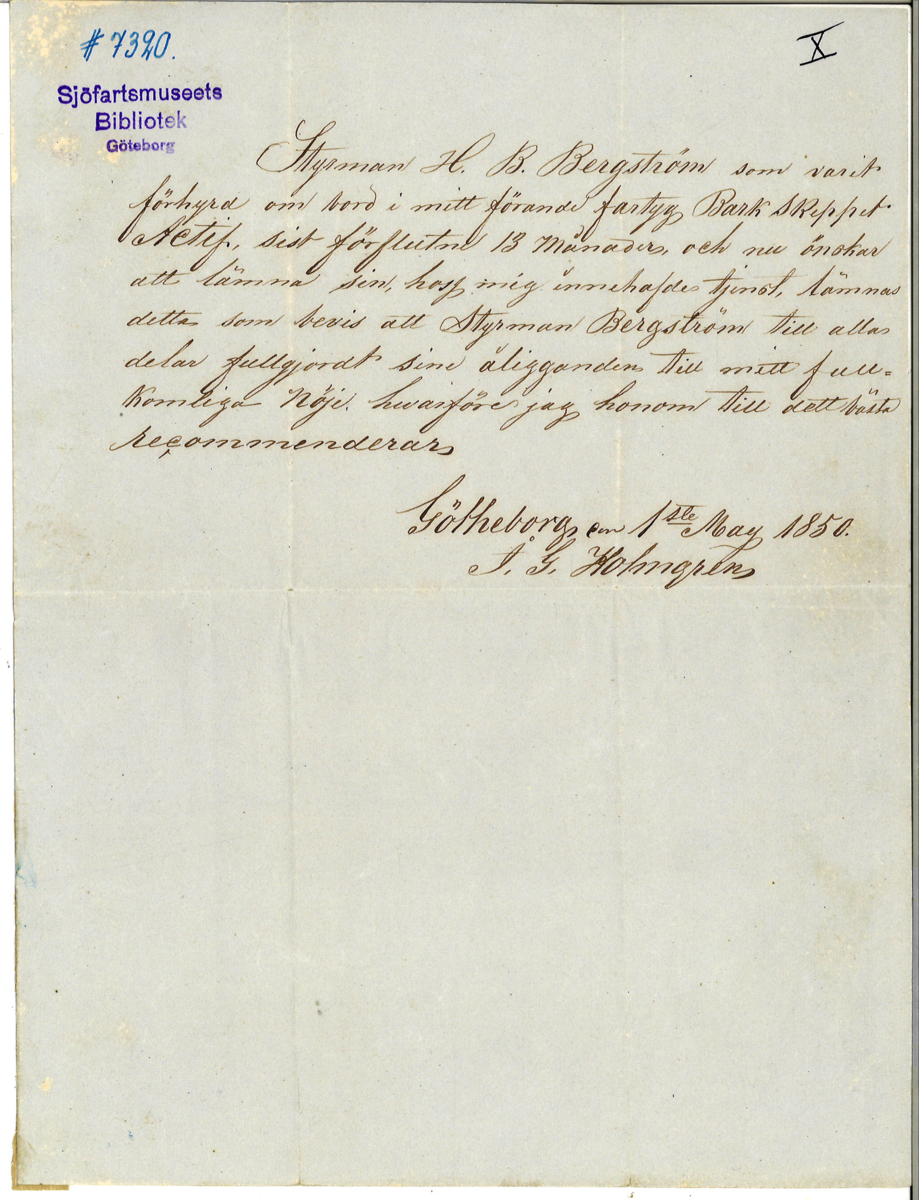 # 7320.
X
Sjöfartsmuseets
Bibliotek
Göteborg
Styrman H. B. Bergström som varit
förhyrd om bord i mitt förande fartyg Bark Skeppet
Actif, sist förflutne 13 Månader, och nu önskar
att lämna sin, hos mig innehafde tjenst, lämnas
detta som bevis att Styrman Bergström till alla
delar fullgjordt sine åligganden till mitt full=
komliga Nöje. hvarföre jag honom till dett bästa
recommenderar
Götheborg den 1ste May 1850.
A. G. Holmgren